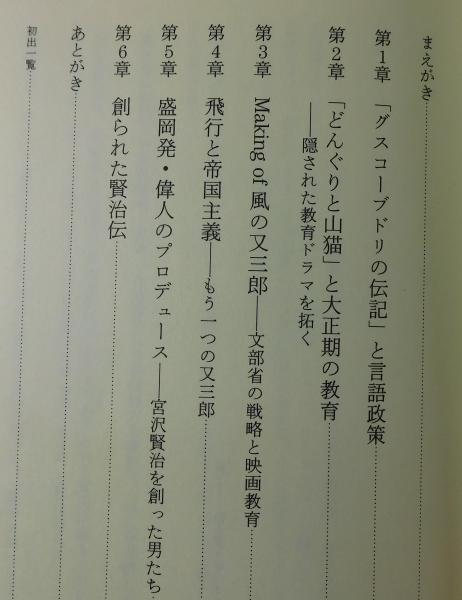 まえがき
第1章 「グスコーブドリの伝記」と言語政策
第2章 「どんぐりと山猫」と大正期の教育
――隠された教育ドラマを拓く
第3章 Making of 風の又三郎――文部省の戦略と映画教育
第4章 飛行と帝国主義――もう一つの又三郎
第5章 盛岡発・偉人のプロデュース――宮沢賢治を創った男たち
第6章 創られた賢治伝
あとがき
初出一覧